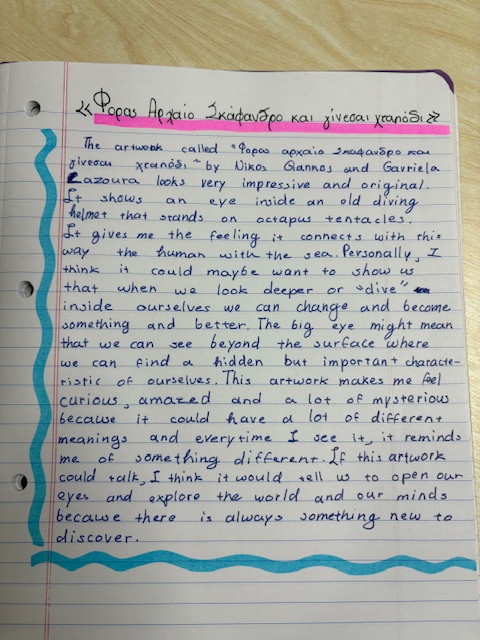 «Φορας Αρχαίο Σκάφανδρο και γίνεσαι χταπόδι»
The artwork called "Φορας αρχαίο σκάφανδρο και
γίνεσαι χταπόδι" by Nikos Giannos and Gavriela
Lazoura looks very impressive and original.
It shows an eye inside an old diving
helmet that stands on octopus tentacles.
It gives me the feeling it connects with this
way the human with the sea. Personally, I
think it could maybe want to show us
that when we look deeper or "dive"
inside ourselves we can change and become
something and better. The big eye might mean
that we can see beyond the surface where
we can find a hidden but important characte-
ristic of ourselves. This artwork makes me feel
curious, amazed and a lot of mysterious
because it could have a lot of different
meanings and everytime I see it, it reminds
me of something different. If this artwork
could talk, I think it would tell us to open our
eyes and explore the world and our minds
because there is always something new to
discover.